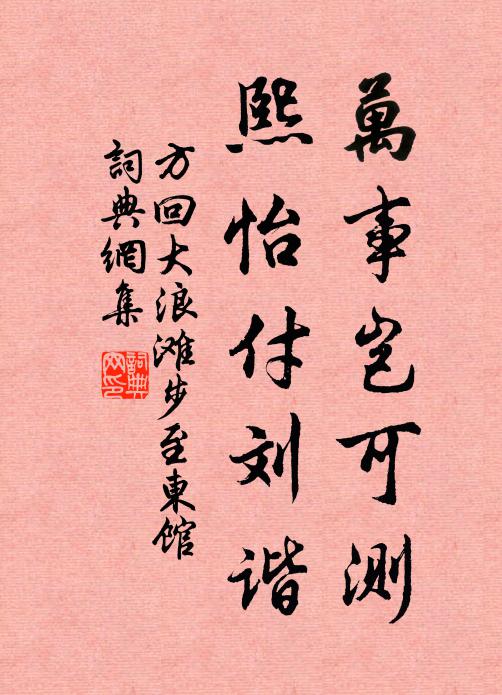 萬事岂可测
熙怡付刘谐
方回大浪滩步至東馆
詞典網集
詞典網印